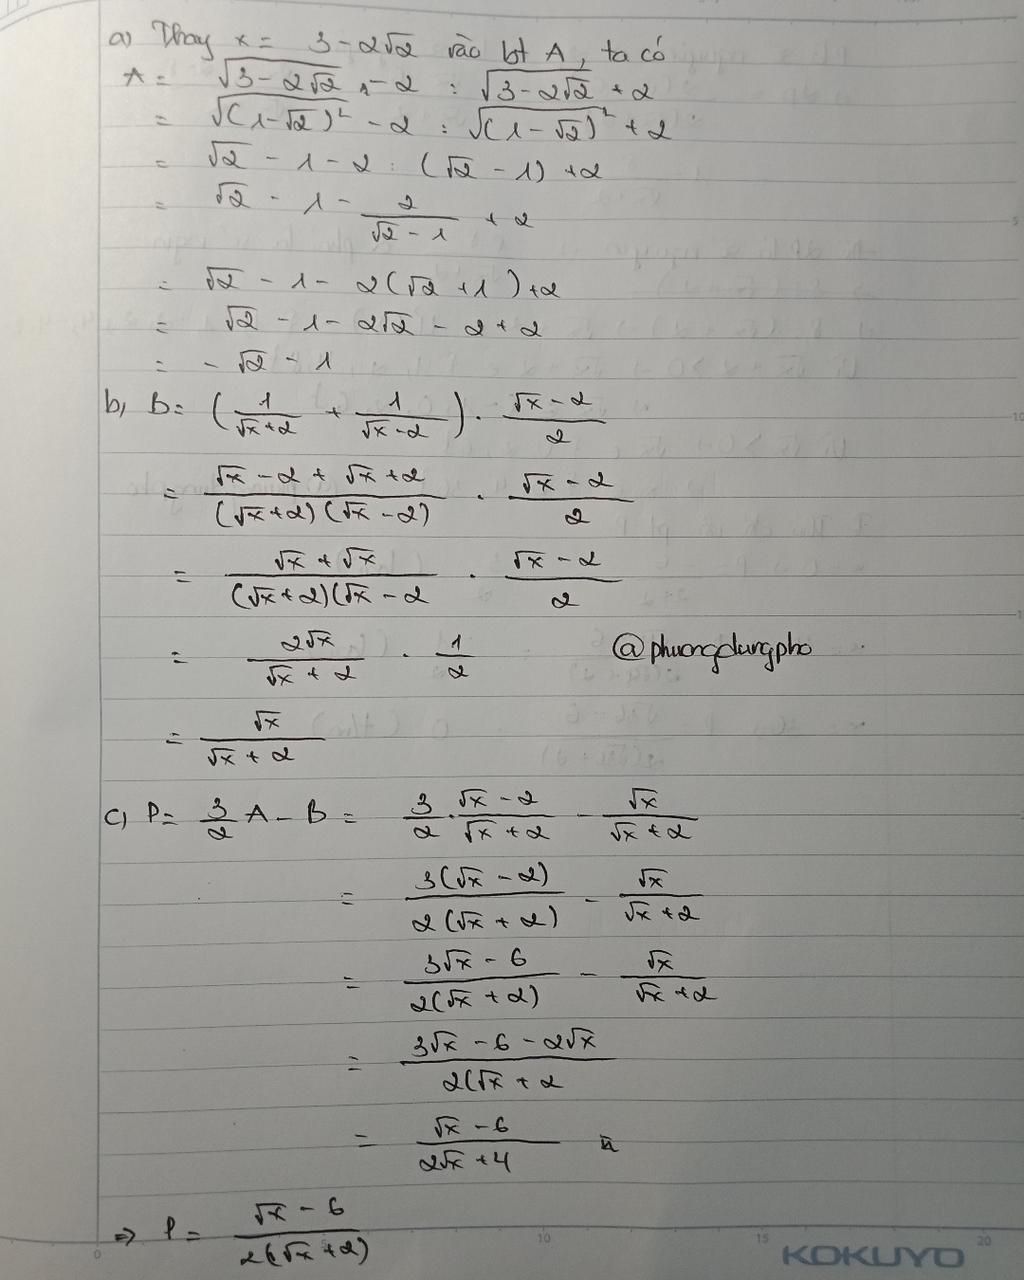 a) Thay x = 3 - 2√2 vào bt A, ta có
A = √(3 - 2√2) - 2 : √(3 - 2√2) + 2
= √(1-√2)² - 2 : √(1-√2)² + 2
= √2 - 1 - 2 : (√2 - 1) + 2
= √2 - 1 - 2/(√2 - 1) + 2
= √2 - 1 - 2(√2 + 1) + 2
= √2 - 1 - 2√2 - 2 + 2
= - √2 - 1
b, B = (1/(√x+2) + 1/(√x-2)) . (√x - 2)/2
= (√x - 2 + √x + 2)/((√x+2)(√x-2)) . (√x - 2)/2
= (√x + √x)/((√x+2)(√x - 2) . (√x - 2)/2
= 2√x/(√x + 2) . 1/2
@phuongdungpho
= √x/(√x + 2)
c, P = 3/2 A - B = 3/2 . (√x - 2)/(√x + 2) - √x/(√x + 2)
= 3(√x - 2)/2(√x + 2) - √x/(√x + 2)
= (3√x - 6)/2(√x + 2) - √x/(√x + 2)
= (3√x - 6 - 2√x)/2(√x + 2
= (√x - 6)/(2√x + 4)
⇒ P = (√x - 6)/2(√x + 2)
0 5 10 15 20
KOKUYO